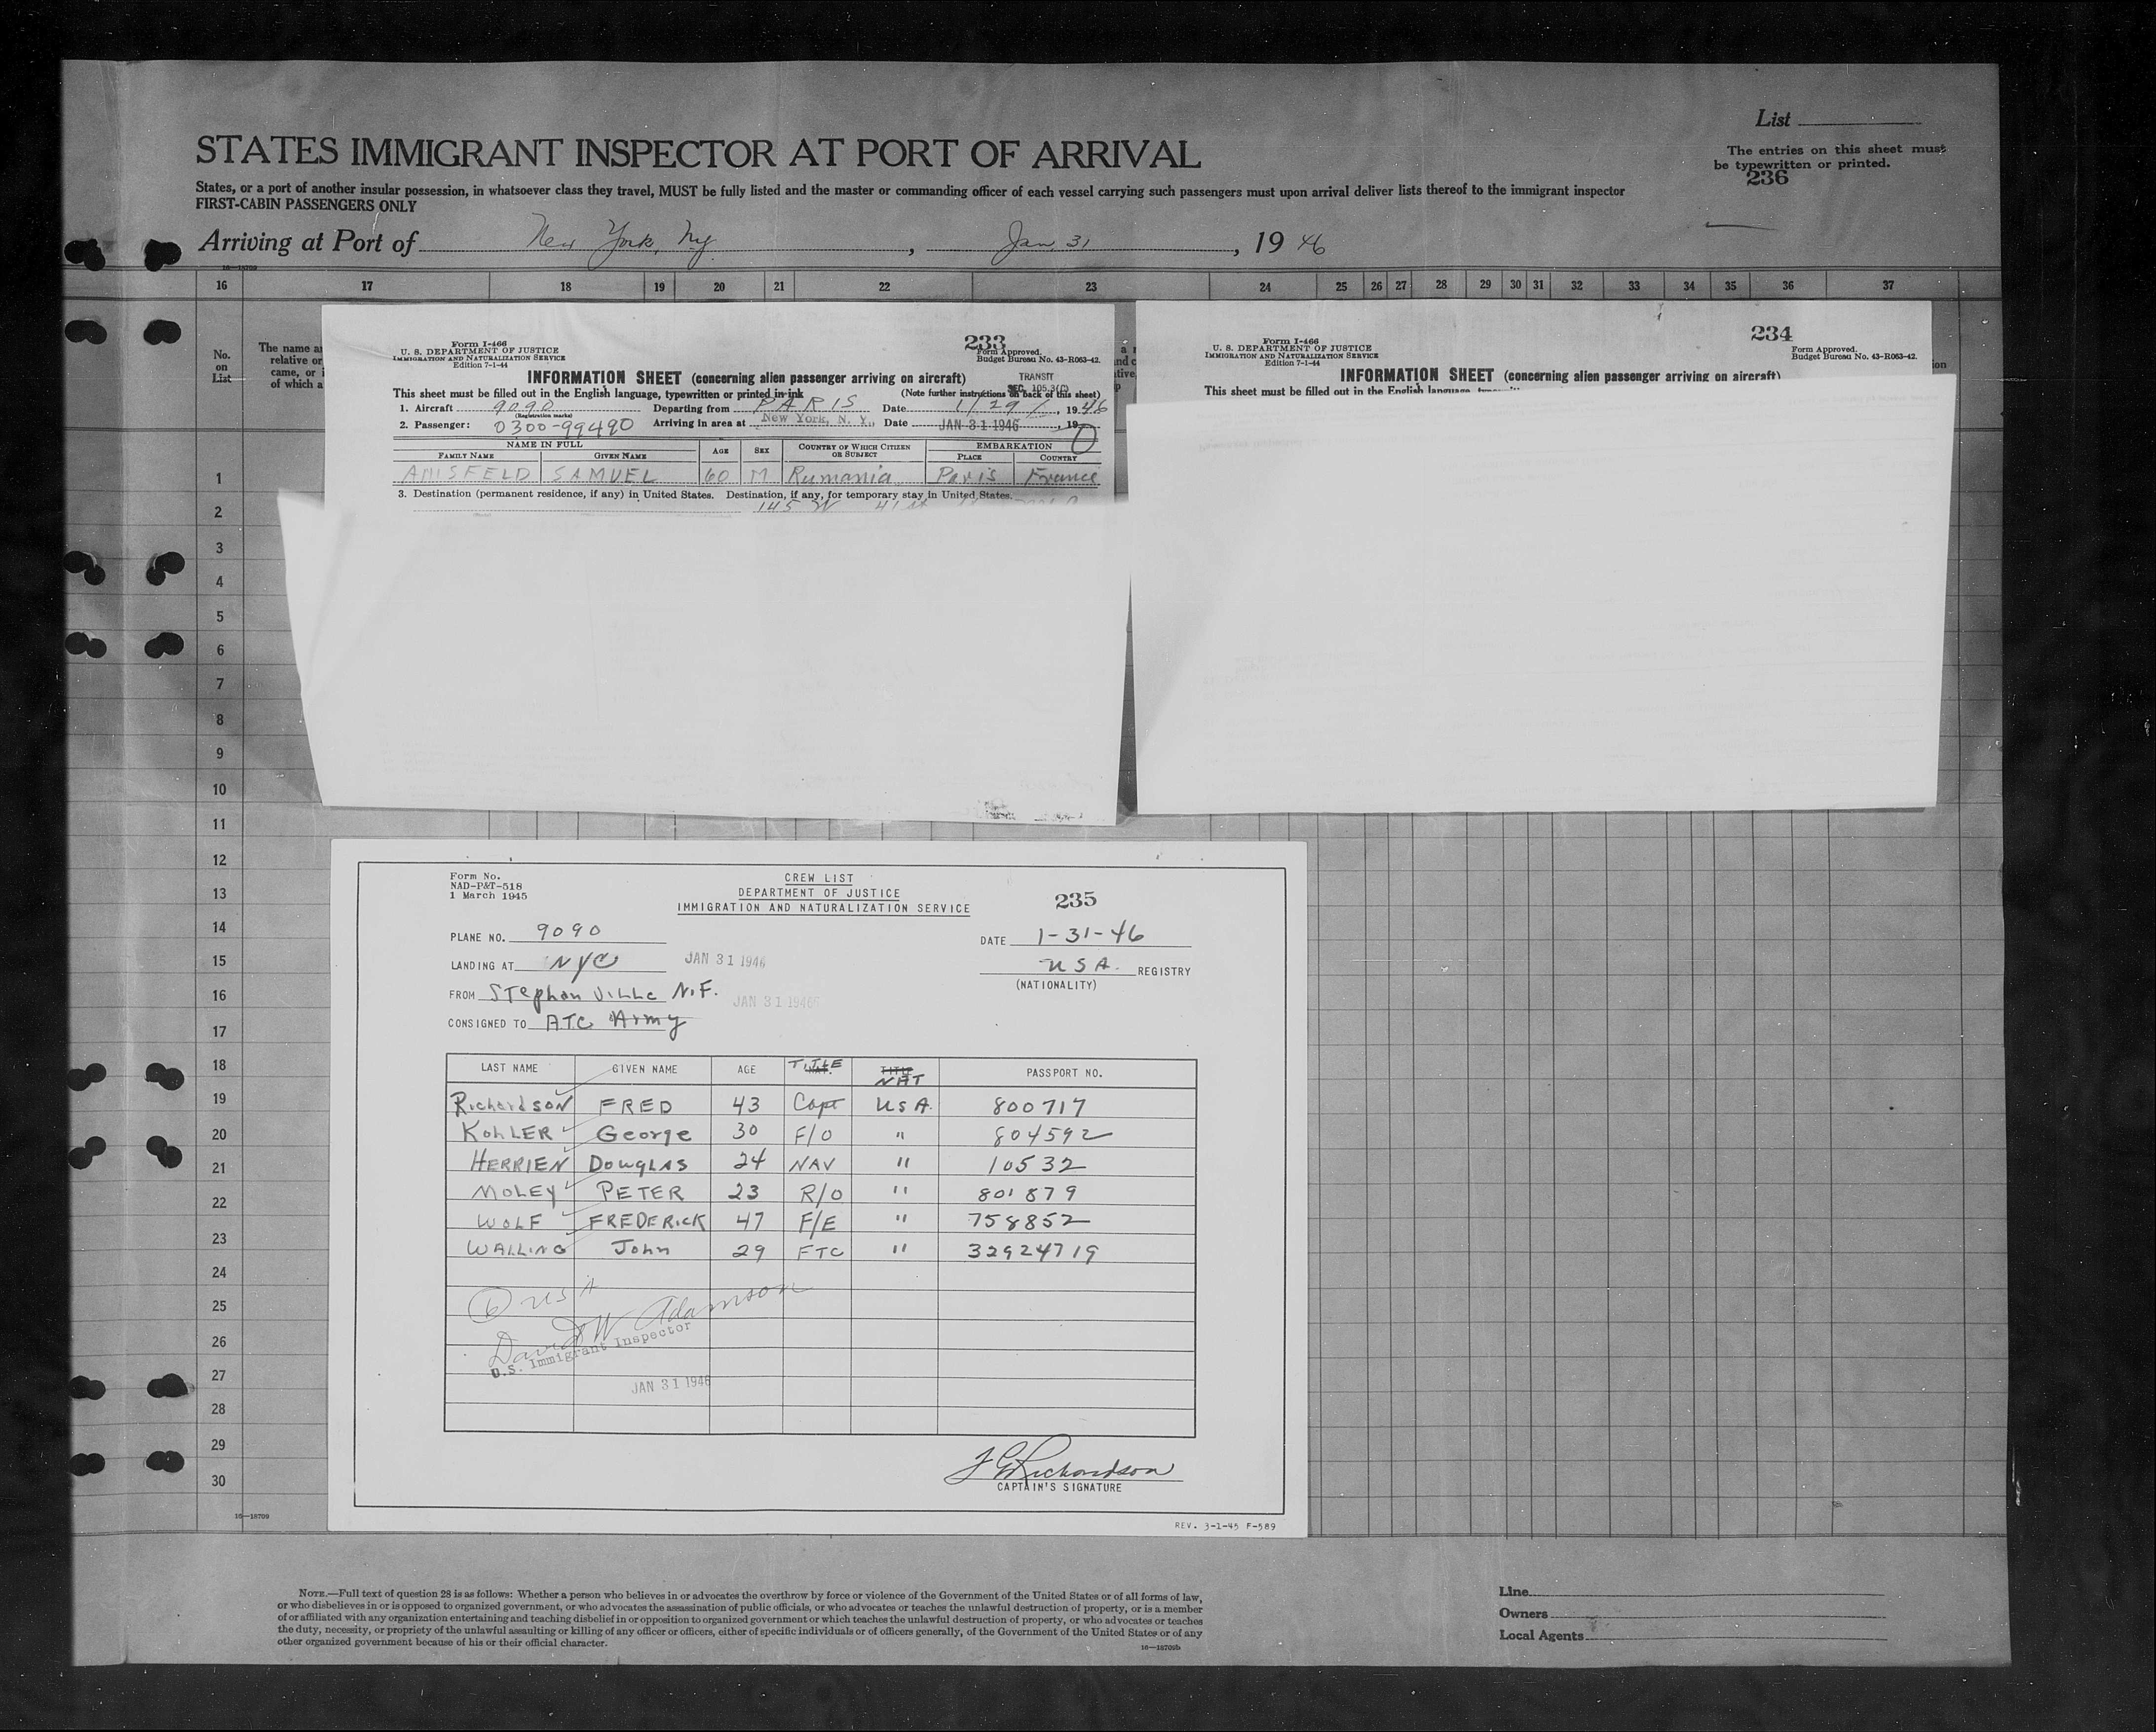 List
The entries on this sheet must
be typewritten or printed.
236
STATES IMMIGRANT INSPECTOR AT PORT OF ARRIVAL
States, or a port of another insular possession, in whatsoever class they travel, MUST be fully listed and the master or commanding officer of each vessel carrying such passengers must upon arrival deliver lists thereof to the immigrant inspector
FIRST-CABIN PASSENGERS ONLY
Arriving at Port of New York, Ny, Jan. 31, 19 46
16—18709
16 17 18 19 20 21 22 23 24 25 26 27 28 29 30 31 32 33 34 35 36 37
No.
on
List
The name a
relative or
came, or i
of which a
Form I-466
U. S. DEPARTMENT OF JUSTICE
IMMIGRATION AND NATURALIZATION SERVICE
Edition 7-1-44
233
Form Approved.
Budget Bureau No. 43-R063-42.
INFORMATION SHEET (concerning alien passenger arriving on aircraft)
TRANSIT
SEC. 105.3(C)
This sheet must be filled out in the English language, typewritten or printed in ink (Note further instructions on back of this sheet)
1. Aircraft 9090 Departing from PARIS Date 1/29/, 1946
(Registration marks)
2. Passenger: 0300-99490 Arriving in area at New York, N. Y., Date JAN 31 1946, 19
NAME IN FULL AGE SEX COUNTRY OF WHICH CITIZEN OR SUBJECT EMBARKATION
FAMILY NAME GIVEN NAME PLACE COUNTRY
ANISFELD SAMUEL 60 M Rumania Paris France
3. Destination (permanent residence, if any) in United States. Destination, if any, for temporary stay in United States.
145 W 41st
Form I-466
U. S. DEPARTMENT OF JUSTICE
IMMIGRATION AND NATURALIZATION SERVICE
Edition 7-1-44
234
Form Approved.
Budget Bureau No. 43-R063-42.
INFORMATION SHEET (concerning alien passenger arriving on aircraft)
This sheet must be filled out in the English language,
1
2
3
4
5
6
7
8
9
10
11
12
13
14
15
16
17
18
19
20
21
22
23
24
25
26
27
28
29
30
16—18709
Form No.
NAD-P&T-518
1 March 1945
CREW LIST
DEPARTMENT OF JUSTICE
IMMIGRATION AND NATURALIZATION SERVICE
235
PLANE NO. 9090
DATE 1-31-46
LANDING AT NYC JAN 31 1946
USA REGISTRY
(NATIONALITY)
FROM Stephan Ville N.F. JAN 31 1946
CONSIGNED TO ATC Army
LAST NAME GIVEN NAME AGE TITLE NAT PASSPORT NO.
Richardson FRED 43 Capt USA 800717
KohLER George 30 F/O " 804592
HERRIEN DOUGLAS 24 NAV " 10532
MOLEY PETER 23 R/O " 801879
WOLF FREDERICK 47 F/E " 758852
WALLING John 29 FTC " 32924719
6 USA
David W Adamson
U.S. Immigrant Inspector
JAN 31 1946
F G Richardson
CAPTAIN'S SIGNATURE
REV. 3-1-45 F-589
NOTE.—Full text of question 28 is as follows: Whether a person who believes in or advocates the overthrow by force or violence of the Government of the United States or of all forms of law,
or who disbelieves in or is opposed to organized government, or who advocates the assassination of public officials, or who advocates or teaches the unlawful destruction of property, or is a member
of or affiliated with any organization entertaining and teaching disbelief in or opposition to organized government or which teaches the unlawful destruction of property, or who advocates or teaches
the duty, necessity, or propriety of the unlawful assaulting or killing of any officer or officers, either of specific individuals or of officers generally, of the Government of the United States or of any
other organized government because of his or their official character.
16—18709b
Line
Owners
Local Agents